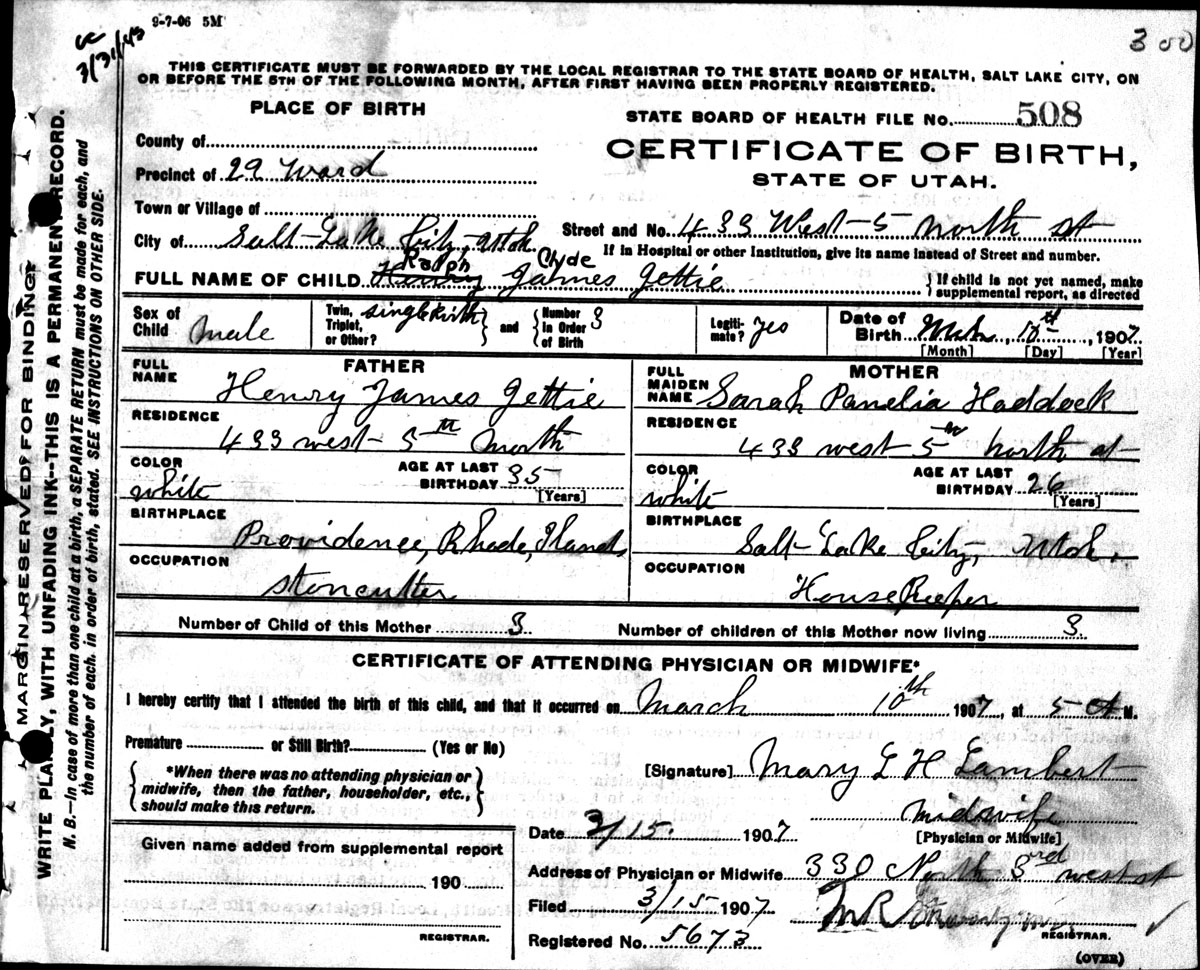 9-7-06 5M
3/31/43
3 00
THIS CERTIFICATE MUST BE FORWARDED BY THE LOCAL REGISTRAR TO THE STATE BOARD OF HEALTH, SALT LAKE CITY, ON
OR BEFORE THE 5TH OF THE FOLLOWING MONTH, AFTER FIRST HAVING BEEN PROPERLY REGISTERED.
MARGIN RESERVED FOR BINDING
WRITE PLAINLY, WITH UNFADING INK--THIS IS A PERMANENT RECORD.
N. B.—In case of more than one child at a birth, a SEPARATE RETURN must be made for each, and
the number of each, in order of birth, stated. SEE INSTRUCTIONS ON OTHER SIDE.
PLACE OF BIRTH
STATE BOARD OF HEALTH FILE NO. 508
County of
CERTIFICATE OF BIRTH,
Precinct of 29 Ward
STATE OF UTAH.
Town or Village of
Street and No. 433 West 5 North st
City of Salt Lake City, Utah
If in Hospital or other Institution, give its name instead of Street and number.
Ralph Clyde
FULL NAME OF CHILD Henry James Jettie
{If child is not yet named, make
supplemental report, as directed
Sex of Child Male
Twin, Triplet, or Other? single birth} and {Number in Order of Birth 3
Legitimate? Yes
Date of Birth March, 10th, 1907
[Month] [Day] [Year]
FATHER
FULL NAME Henry James Jettie
RESIDENCE
433 west 5th North
COLOR white
AGE AT LAST BIRTHDAY 35
[Years]
BIRTHPLACE
Providence, Rhode Island
OCCUPATION
stoncutter
MOTHER
FULL MAIDEN NAME Sarah Panelia Haddock
RESIDENCE
433 west 5th north st
COLOR white
AGE AT LAST BIRTHDAY 26
[Years]
BIRTHPLACE
Salt Lake City, Utah.
OCCUPATION
House Keeper
Number of Child of this Mother 3
Number of children of this Mother now living 3
CERTIFICATE OF ATTENDING PHYSICIAN OR MIDWIFE*
I hereby certify that I attended the birth of this child, and that it occurred on March 10th 1907, at 5 A M.
Premature or Still Birth? (Yes or No)
{*When there was no attending physician or
midwife, then the father, householder, etc.,
should make this return.}
[Signature] Mary E H Lambert
Midwife
[Physician or Midwife]
Date 3/15. 1907
Given name added from supplemental report
190
REGISTRAR.
Address of Physician or Midwife 330 North 3rd west st
Filed 3/15 1907
REGISTRAR.
Registered No. 5673
(OVER)